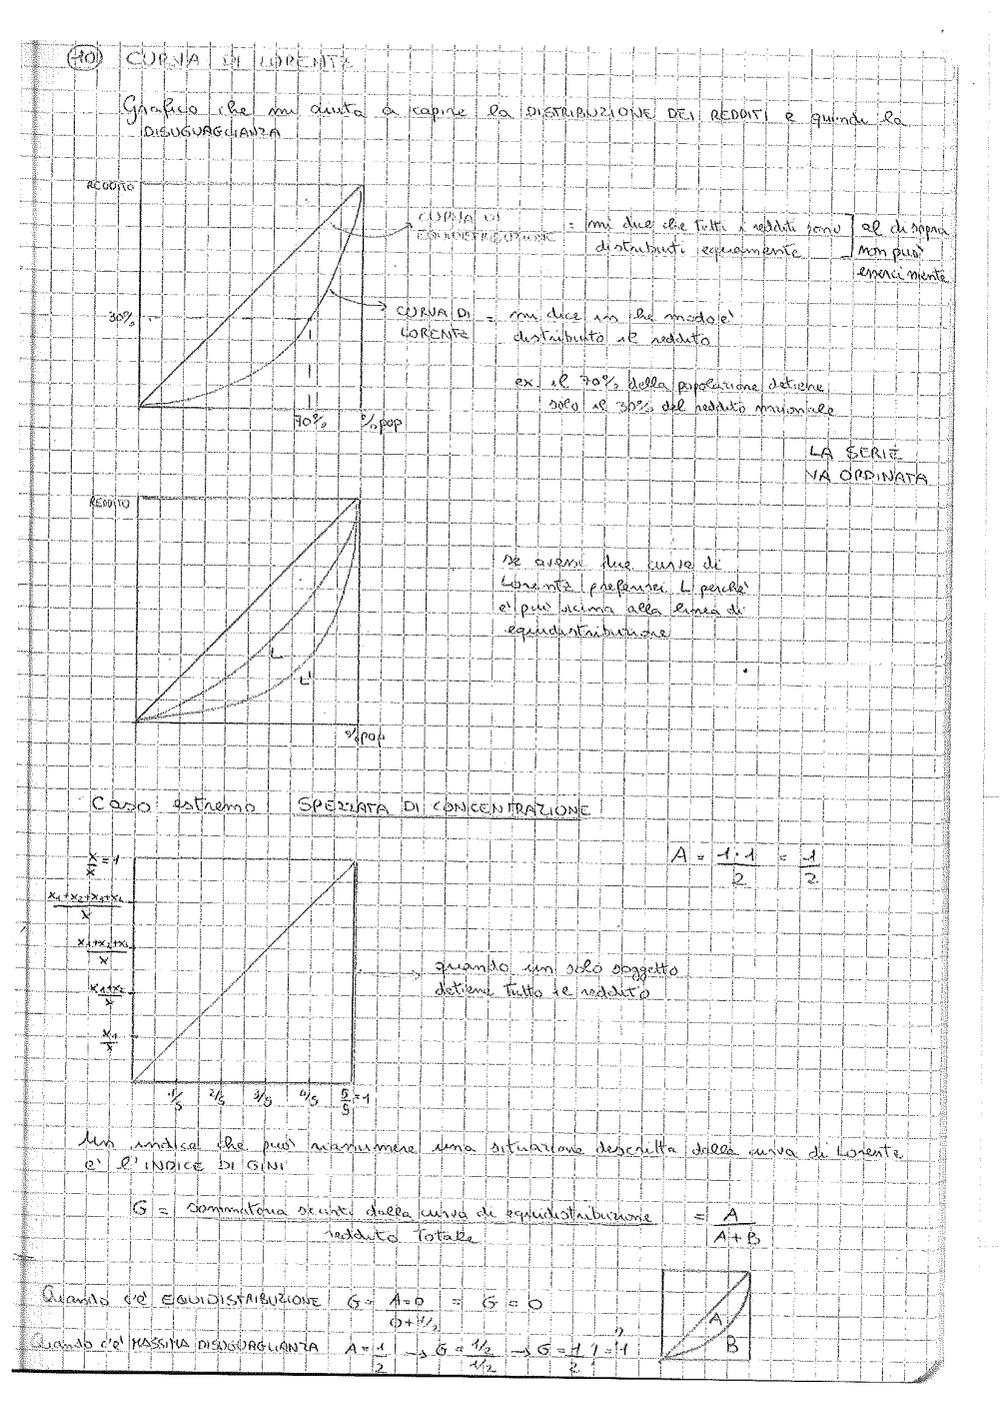 10 CURVA DI LORENTZ
Grafico che mi aiuta a capire la DISTRIBUZIONE DEI REDDITI e quindi la
DISUGUAGLIANZA
REDDITO
CURVA DI
EQUIDISTRIBUZIONE
= mi dice che tutti i redditi sono
distribuiti equamente
al di sopra
non può
esserci niente
30%
CURVA DI
LORENTZ
= mi dice in che modo è
distribuito il reddito
ex. il 70% della popolazione detiene
solo il 30% del reddito nazionale
70% % pop
LA SERIE
VA ORDINATA
REDDITO
se avessi due curve di
Lorentz preferirei L perché
è più vicina alla linea di
equidistribuzione
L
L'
% pop
Caso estremo SPEZZATA DI CONCENTRAZIONE
x/x = 1
A = 1·1/2 = 1/2
x1+x2+x3+x4/x
x1+x2+x3/x
x1+x2/x
x1/x
→ quando un solo soggetto
detiene tutto il reddito
1/5 2/5 3/5 4/5 5/5 = 1
Un indice che può riassumere una situazione descritta dalla curva di Lorentz
è l'INDICE DI GINI
G = sommatoria scarti dalla curva di equidistribuzione / reddito totale = A/A+B
Quando c'è EQUIDISTRIBUZIONE G = A=0/0+1/2 = G = 0
Quando c'è MASSIMA DISUGUAGLIANZA A = 1/2 → G = 1/2/1/2 → G =
A
B